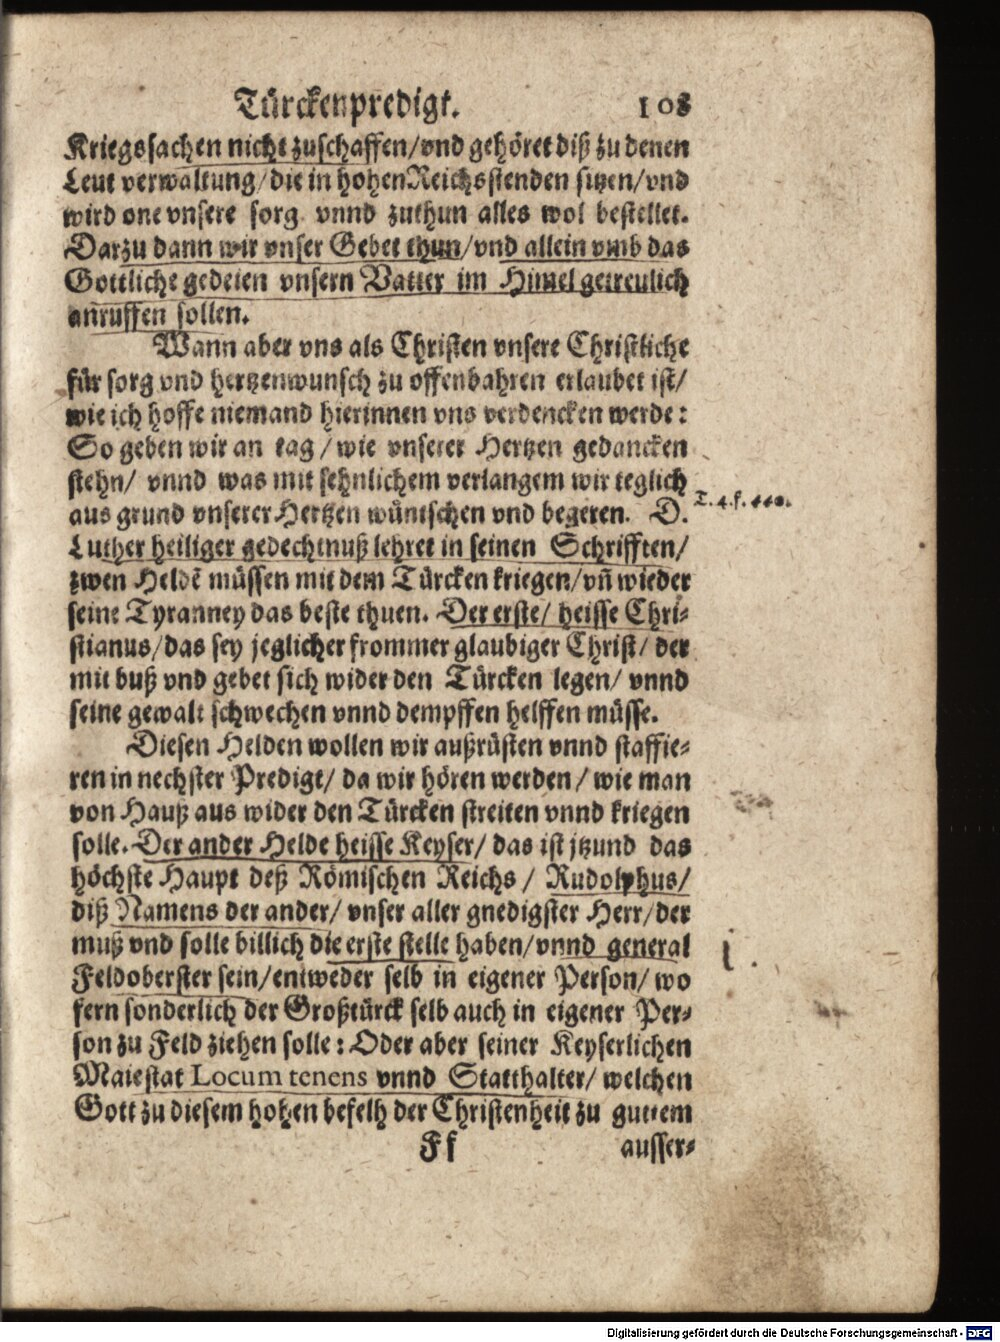 Türckenpredigt. 108
Kriegssachen nicht zuschaffen/vnd gehöret diß zu denen
Leut verwaltung/die in hohen Reichsstenden sitzen/vnd
wird one vnsere sorg vnnd zuthun alles wol bestellet.
Darzu dann wir vnser Gebet thun/vnd allein vmb das
Göttliche gedeien vnsern Vatter im Himel getreulich
anruffen sollen.
Wann aber vns als Christen vnsere Christliche
für sorg vnd hertzenwunsch zu offenbahren erlaubet ist/
wie ich hoffe niemand hierinnen vns verdencken werde:
So geben wir an tag/wie vnserer Hertzen gedancken
stehn/ vnnd was mit sehnlichem verlangem wir teglich
aus grund vnserer Hertzen wüntschen vnd begeren. D.
T. 4. f. 440.
Luther heiliger gedechtnuß lehret in seinen Schrifften/
zwen Heldē müssen mit dem Türcken kriegen/vñ wieder
seine Tyranney das beste thuen. Der erste/ heisse Chri-
stianus/das sey jeglicher frommer glaubiger Christ/ der
mit buß vnd gebet sich wider den Türcken legen/ vnnd
seine gewalt schwechen vnnd dempffen helffen müsse.
Diesen Helden wollen wir außrüsten vnnd staffie-
ren in nechster Predigt/ da wir hören werden/ wie man
von Hauß aus wider den Türcken streiten vnnd kriegen
solle. Der ander Helde heisse Keyser/ das ist jtzund das
höchste Haupt deß Römischen Reichs/ Rudolphus/
diß Namens der ander/ vnser aller gnedigster Herr/der
muß vnd solle billich die erste stelle haben/vnnd general
Feldoberster sein/entweder selb in eigener Person/ wo
fern sonderlich der Großtürck selb auch in eigener Per-
son zu Feld ziehen solle: Oder aber seiner Keyserlichen
Maiestat Locum tenens vnnd Statthalter/ welchen
Gott zu diesem hohen befelh der Christenheit zu guttem
Ff ausser-
Digitalisierung gefördert durch die Deutsche Forschungsgemeinschaft - DFG